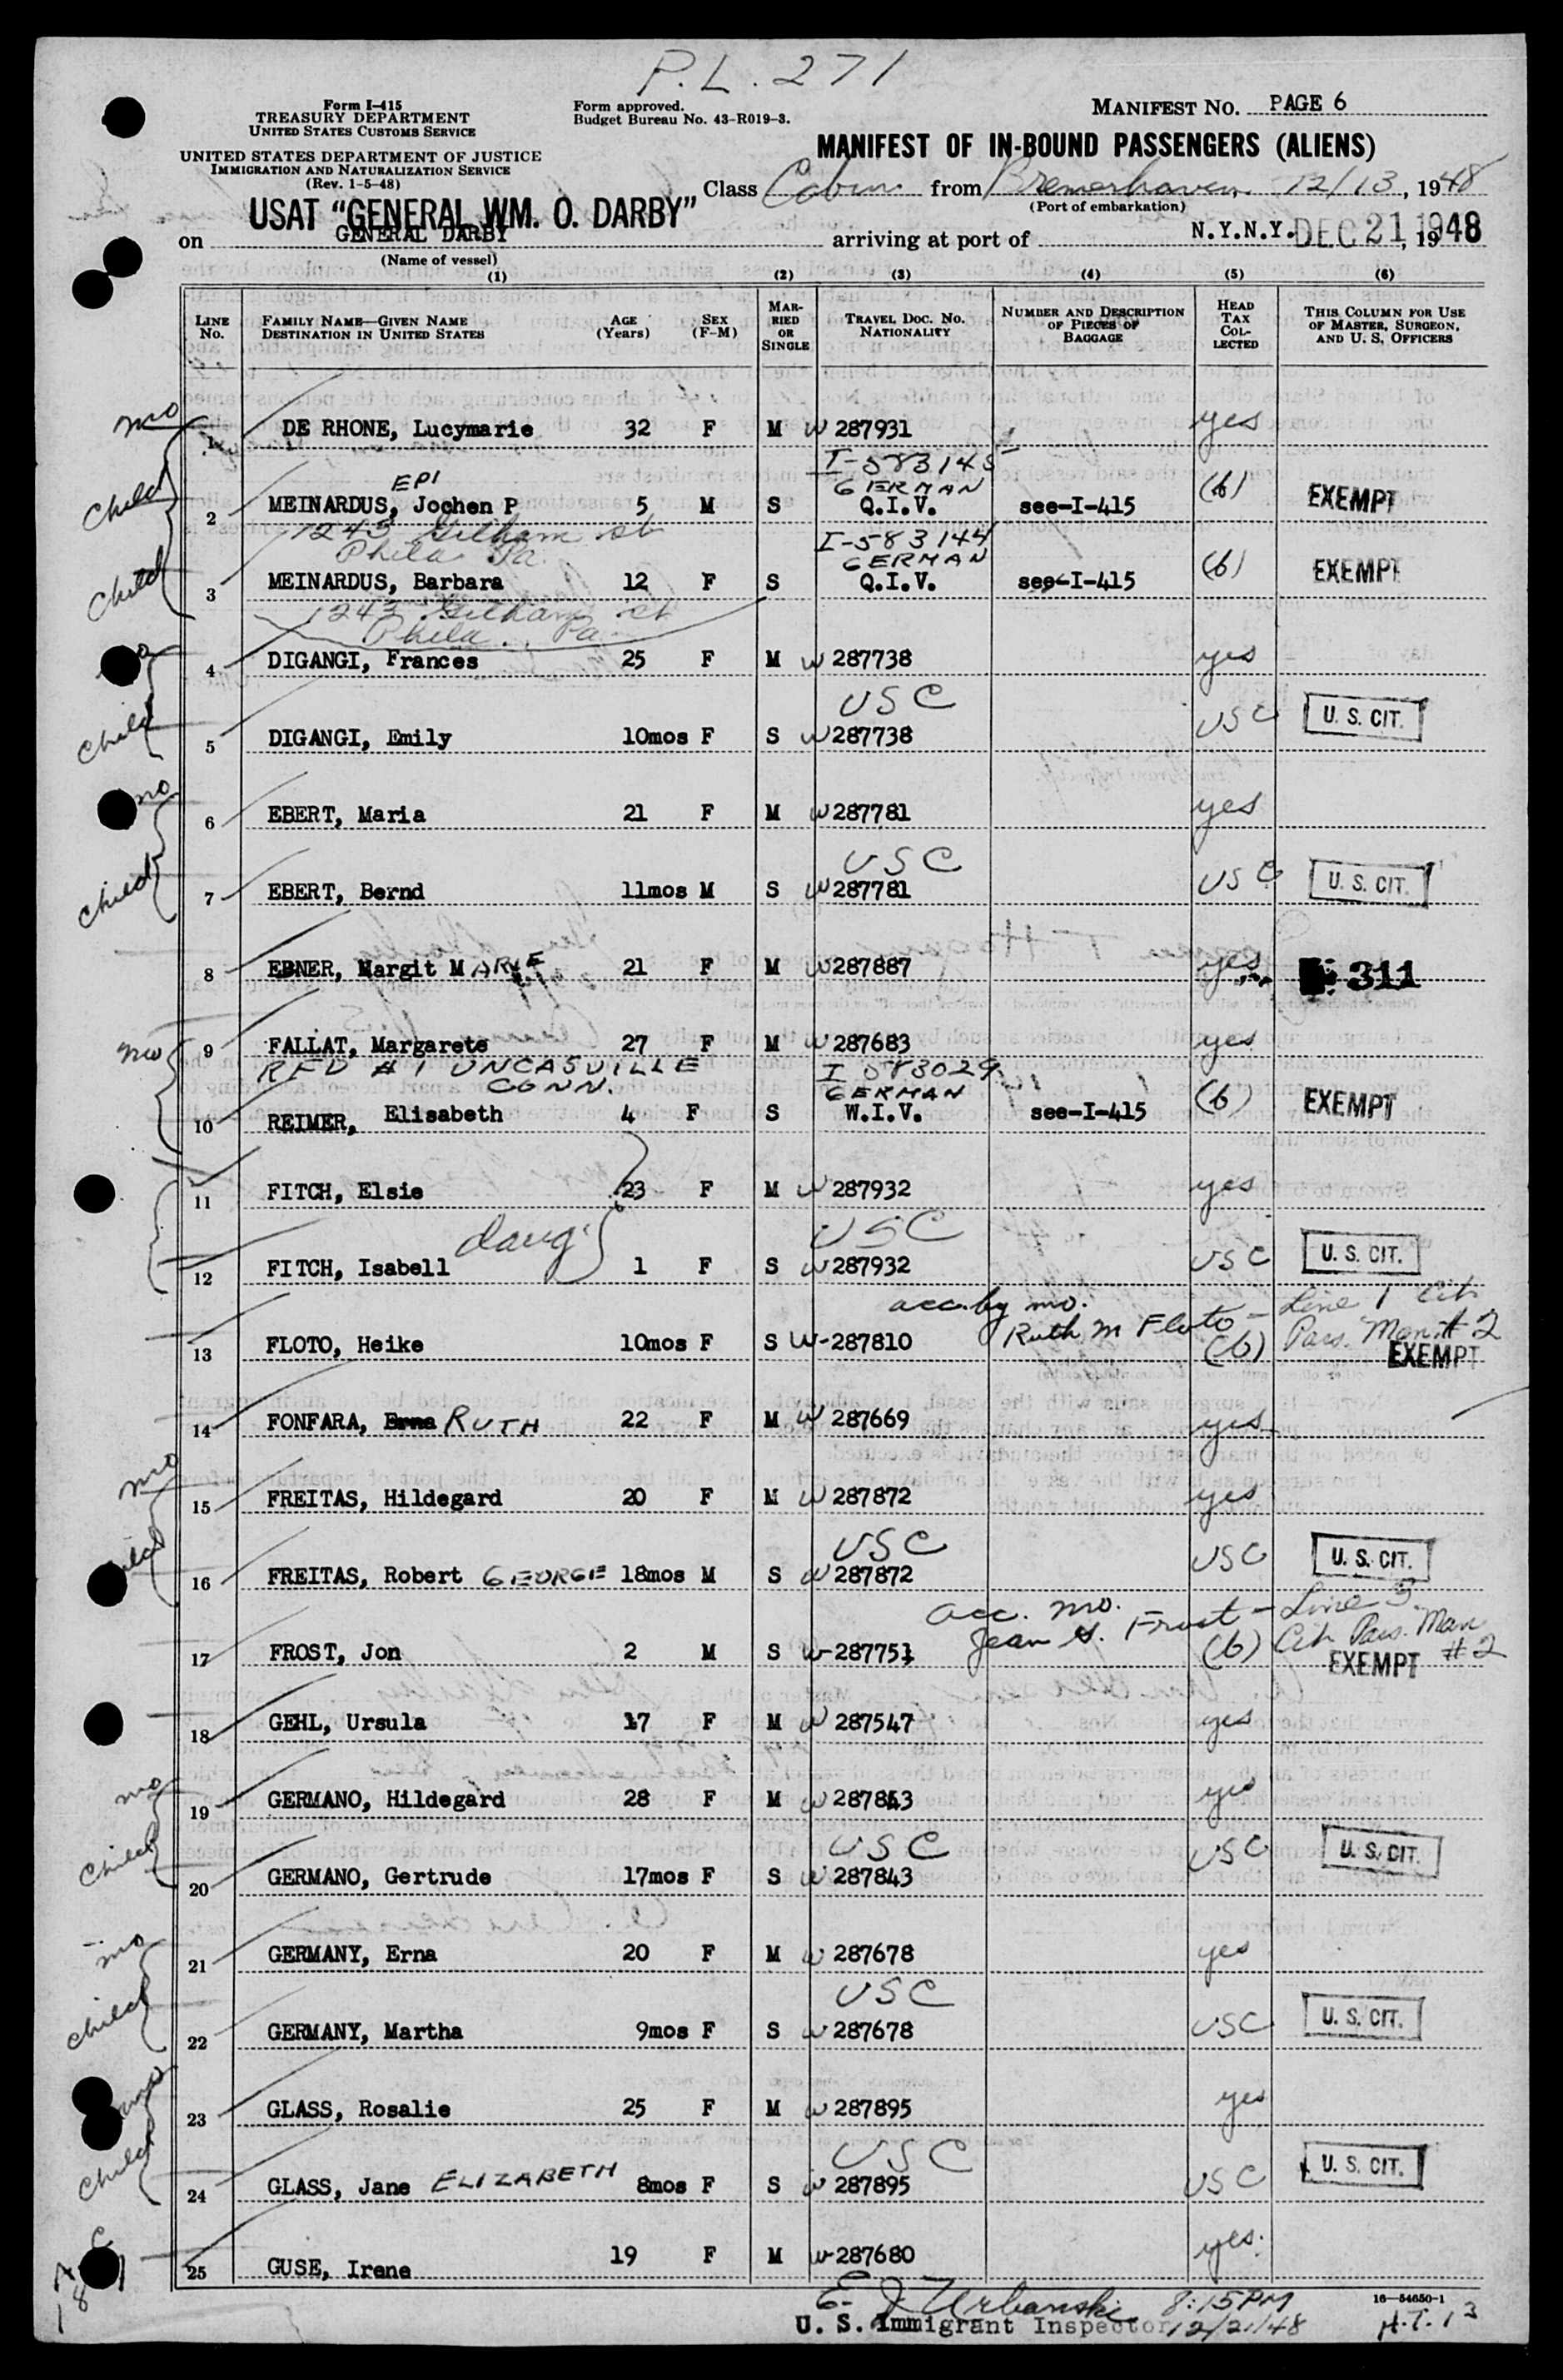 P.L. 271
Form I-415
TREASURY DEPARTMENT
UNITED STATES CUSTOMS SERVICE
Form approved.
Budget Bureau No. 43-R019-3.
MANIFEST NO. PAGE 6
UNITED STATES DEPARTMENT OF JUSTICE
IMMIGRATION AND NATURALIZATION SERVICE
(Rev. 1-5-48)
MANIFEST OF IN-BOUND PASSENGERS (ALIENS)
Class Cabin from Bremerhaven, 12/13, 1948
(Port of embarkation)
USAT "GENERAL WM. O. DARBY"
on GENERAL DARBY arriving at port of N.Y.N.Y. DEC 21, 1948
(Name of vessel)
(1) (2) (3) (4) (5) (6)
LINE No. FAMILY NAME—GIVEN NAME DESTINATION IN UNITED STATES AGE (Years) SEX (F-M) MARRIED OR SINGLE TRAVEL DOC. NO. NATIONALITY NUMBER AND DESCRIPTION OF PIECES OF BAGGAGE HEAD TAX COLLECTED THIS COLUMN FOR USE OF MASTER, SURGEON, AND U. S. OFFICERS
mo 1 DE RHONE, Lucymarie 32 F M W 287931 yes
EPI I-583145
GERMAN
child 2 MEINARDUS, Jochen P 5 M S Q.I.V. see-I-415 (b) EXEMPT
1243 Gilham st I-583144
Phila Pa. GERMAN
child 3 MEINARDUS, Barbara 12 F S Q.I.V. see-I-415 (b) EXEMPT
1243 Gilham st
Phila. Pa
4 DIGANGI, Frances 25 F M W 287738 yes
USC
child 5 DIGANGI, Emily 10mos F S W 287738 USC U. S. CIT.
mo 6 EBERT, Maria 21 F M W 287781 yes
USC
child 7 EBERT, Bernd 11mos M S W 287781 USC U. S. CIT.
8 EBNER, Margit MARIE 21 F M W 287887 yes 311
mo 9 FALLAT, Margarete 27 F M W 287683 yes
RFD #1 UNCASVILLE I 583029
CONN. GERMAN
10 REIMER, Elisabeth 4 F S W.I.V. see-I-415 (b) EXEMPT
11 FITCH, Elsie 23 F M W 287932 yes
daug USC
12 FITCH, Isabell 1 F S W 287932 USC U. S. CIT.
acc. by mo. Ruth M Floto - Line 1 Cit Pass. Man. # 2
13 FLOTO, Heike 10mos F S W-287810 (b) EXEMPT
14 FONFARA, Erna RUTH 22 F M W 287669 yes
mo 15 FREITAS, Hildegard 20 F M W 287872 yes
USC
child 16 FREITAS, Robert GEORGE 18mos M S W 287872 USC U. S. CIT.
acc. mo. Jean Frost - Line 5 Cit Pass. Man # 2
17 FROST, Jon 2 M S W-287751 (b) EXEMPT
18 GEHL, Ursula 17 F M W 287547 yes
mo 19 GERMANO, Hildegard 28 F M W 287843 yes
USC
child 20 GERMANO, Gertrude 17mos F S W 287843 USC U. S. CIT.
mo 21 GERMANY, Erna 20 F M W 287678 yes
USC
child 22 GERMANY, Martha 9mos F S W 287678 USC U. S. CIT.
mo 23 GLASS, Rosalie 25 F M W 287895 yes
USC
child 24 GLASS, Jane ELIZABETH 8mos F S W 287895 USC U. S. CIT.
25 GUSE, Irene 19 F M W-287680 yes.
E. J. Urbanski 8:15 PM
U. S. Immigrant Inspector 12/21/48
16—54650-1
H.T. 13